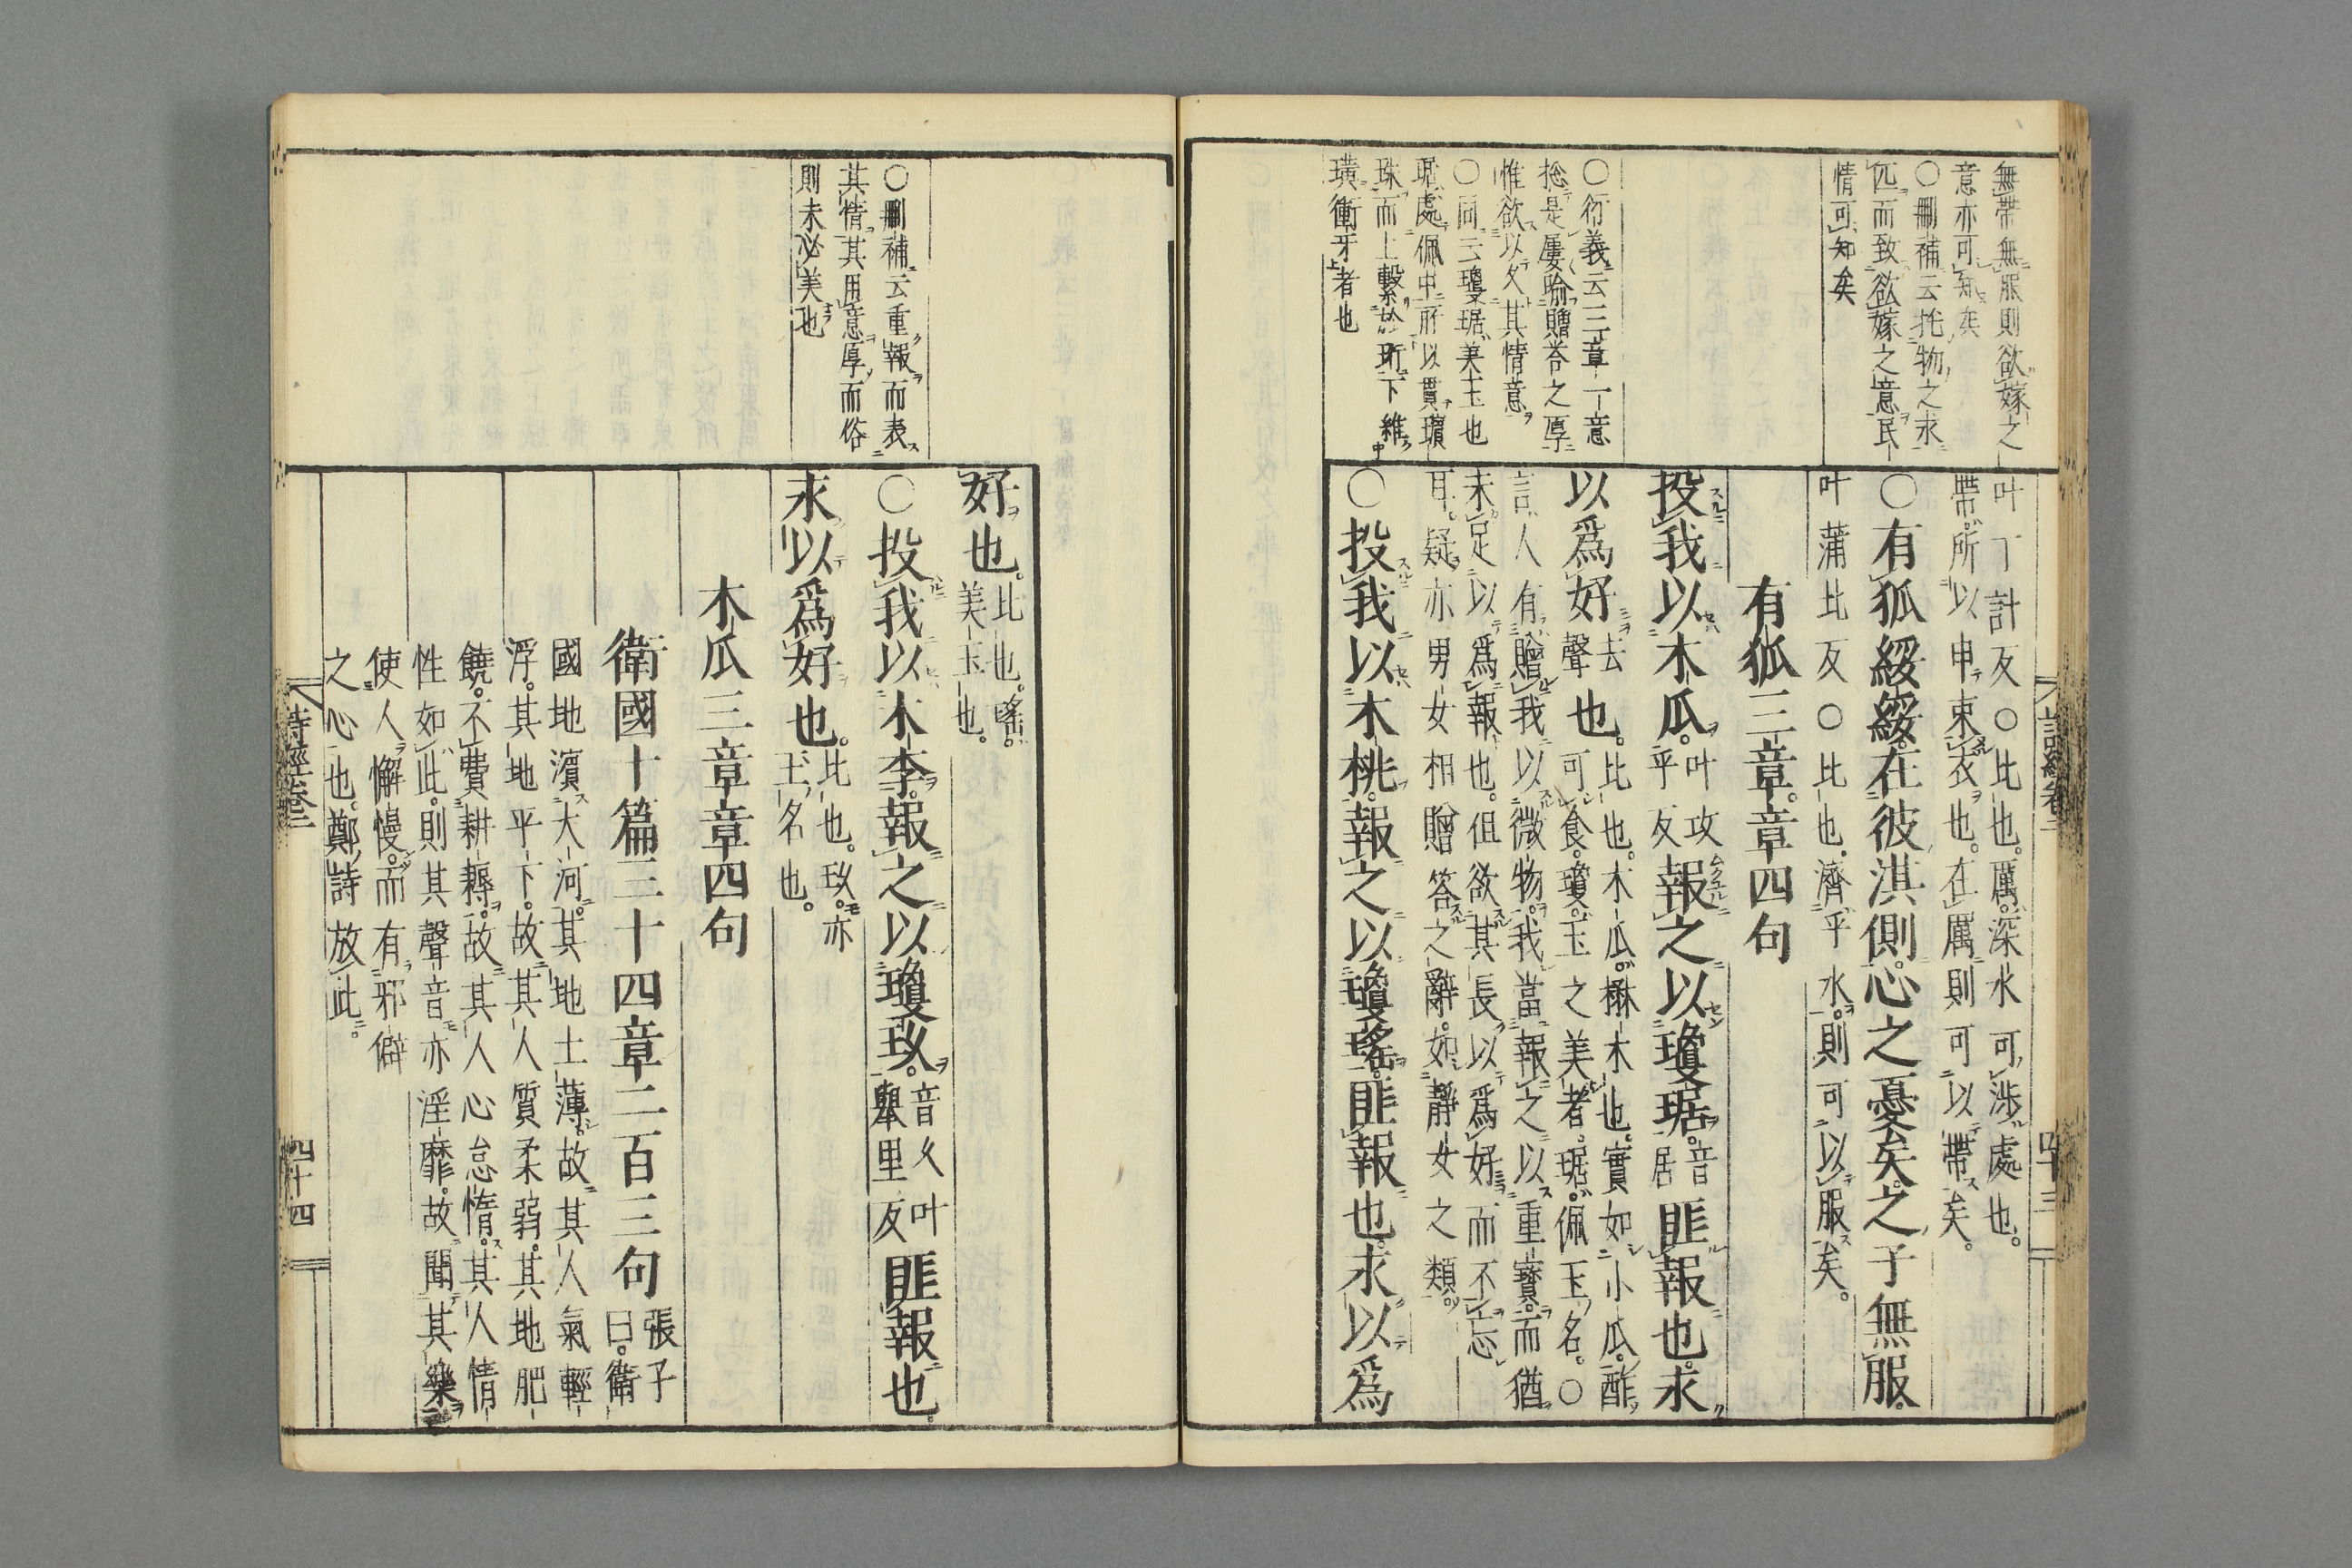 無帶無服則欲嫁之
意亦可知矣
○刪補云托物之求
匹而致欲嫁之意民
情可知矣
○衍義云三章一意
捴是屢喻贈荅之厚
惟欲以久其情意
○同云瓊琚美玉也
琚處佩中所以貫瓆
珠而上繫於珩下維
璜衝牙者也
詩經卷二
四十三
叶丁計反○比也。厲。深水可涉處也。
帶。所以申束衣也。在厲則可以帶矣。
○有狐綏綏。在彼淇側。心之憂矣。之子無服。
叶蒲北反○比也。濟乎水。則可以服矣。
有狐三章。章四句
投我以木瓜。叶攻乎反報之以瓊琚。音居匪報也。求
以爲好去聲也。比也。木瓜。楙木也。實如小瓜。酢可食。瓊。玉之美者。琚。佩玉名。○
言人有贈我以微物。我當報之以重寶。而猶
未足以爲報也。但欲其長以爲好而不忘
耳。疑亦男女相贈答之辭。如靜女之類。
○投我以木桃。報之以瓊瑤。匪報也。求以爲
○刪補云重報而表
其情其用意厚而俗
則未必美也
好也。比也。瑤。美玉也。
○投我以木李。報之以瓊玖。音久叶舉里反匪報也。
求以爲好也。比也。玖。亦玉名也。
木瓜三章章四句
衛國十篇三十四章二百三句張子曰。衛
國地濱大河。其地土薄。故其人氣輕
浮。其地平下。故其人質柔弱。其地肥
饒。不費耕耨。故其人心怠惰。其人情
性如此。則其聲音亦淫靡。故聞其樂
使人懈慢。而有邪僻
之心也。鄭詩放此。
詩經卷二
四十四